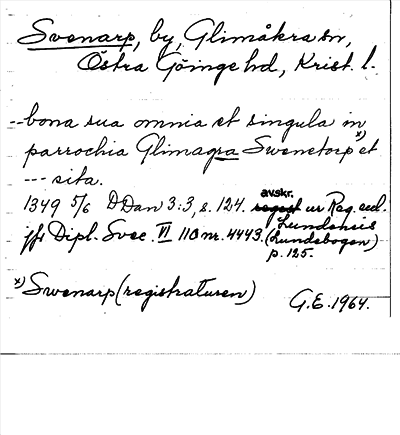 Svenarp, by, Glimåkra sn,
Östra Göinge hd, Krist. l.
--bona sua omnia et singula in
parrochia Glimagra Swenetorp x) et
--- sita.
1349 5/6 DDan 3:3, s. 124. avskr. ur Reg. eccl.
Lundensis
jfr Dipl. Svec. VI 110 nr. 4443. (Lundebogen)
p. 125.
x) Swenarp (registraturen)
G.E. 1964.